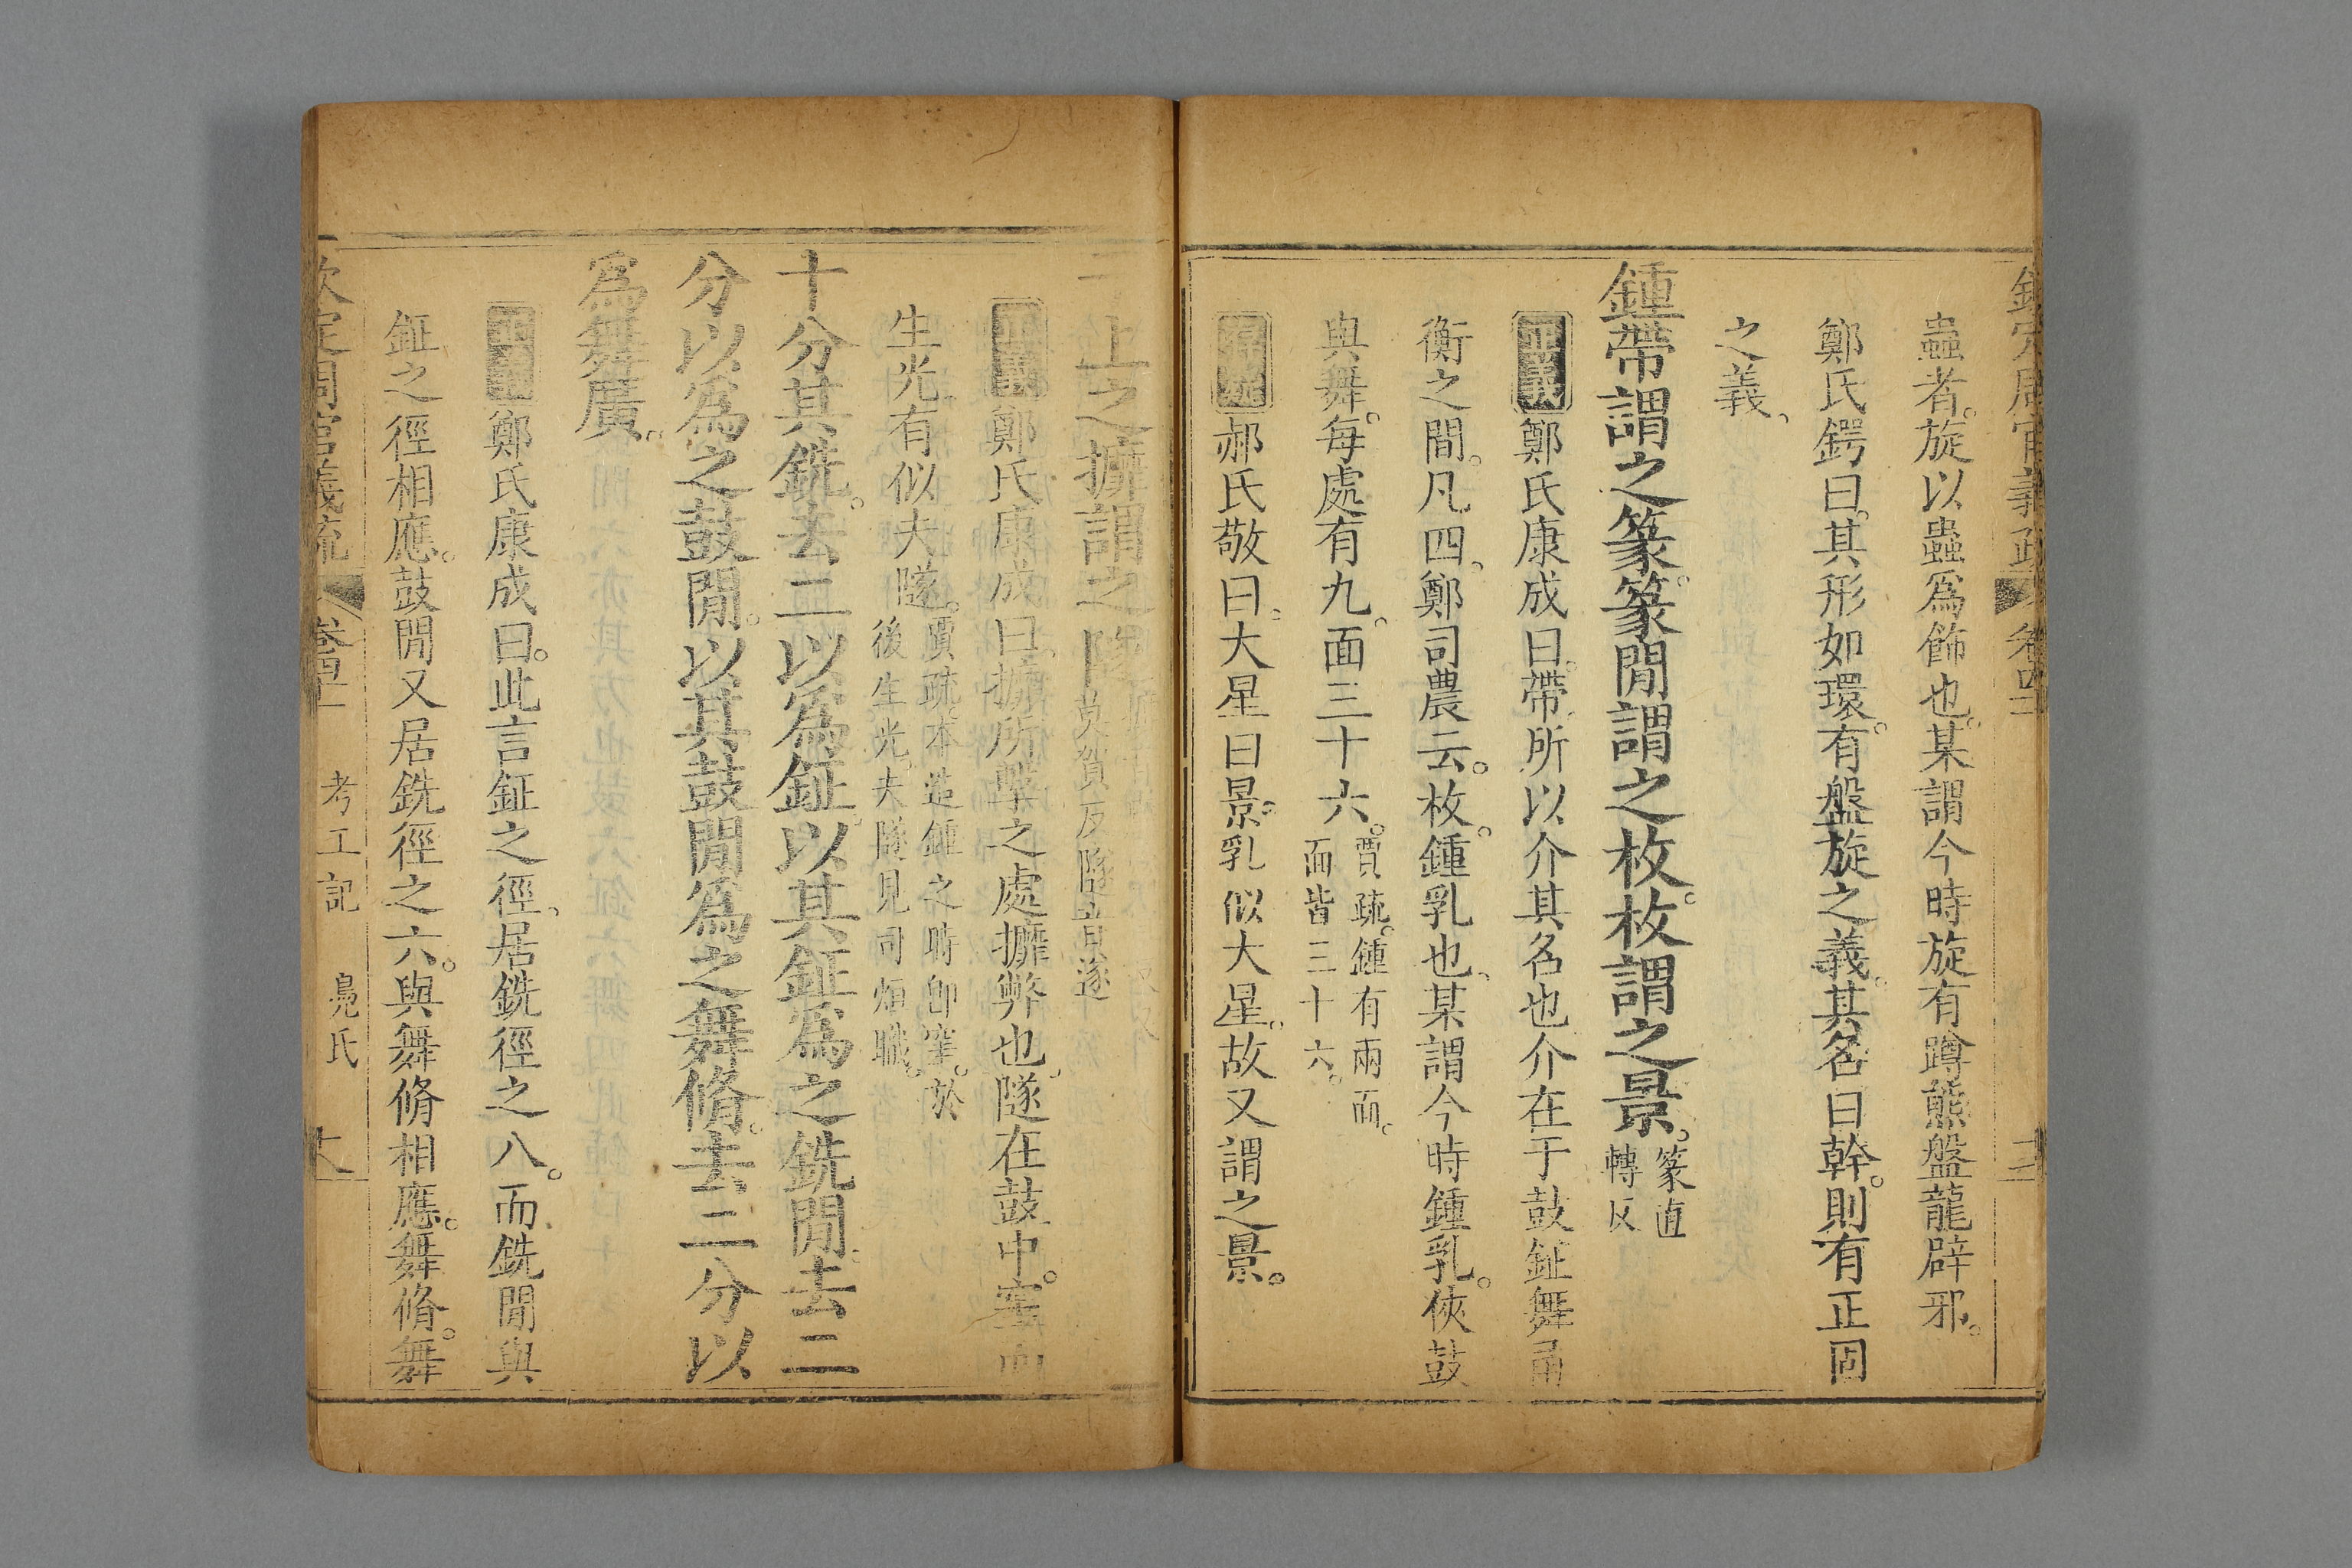 蟲者。旋以蟲爲飾也。某謂今時旋有蹲熊盤龍辟邪。
鄭氏鍔曰。其形如環。有盤旋之義。其名曰幹。則有正固
之義。
鍾帶謂之篆。篆閒謂之枚。枚謂之景。篆直
轉反
正義鄭氏康成曰。帶所以介其名也。介在于鼓鉦舞甬
衡之間。凡四。鄭司農云。枚。鍾乳也。某謂今時鍾乳。俠鼓
與舞。每處有九。面三十六。賈疏。鍾有兩面。
面皆三十六。
郝氏敬曰。大星曰景。乳似大星。故又謂之景。
上之攠謂之隧
莫賀反隧音遂
正義鄭氏康成曰。攠所擊之處攠弊也。隧在鼓中。窐而
生光。有似夫隧。賈疏本造鍾之時卽窐。於
後生光。夫隧見司烜職。
十分其銑。去二以爲鉦。以其鉦爲之銑閒。去二
分以爲之鼓閒。以其鼓閒爲之舞脩。去二分以
爲舞廣。
鄭氏康成曰。此言鉦之徑。居銑徑之八。而銑閒與
鉦之徑相應。鼓閒又居銑徑之六。與舞脩相應。舞脩。舞
欽定周官義疏 卷四十 考工記 鳧氏